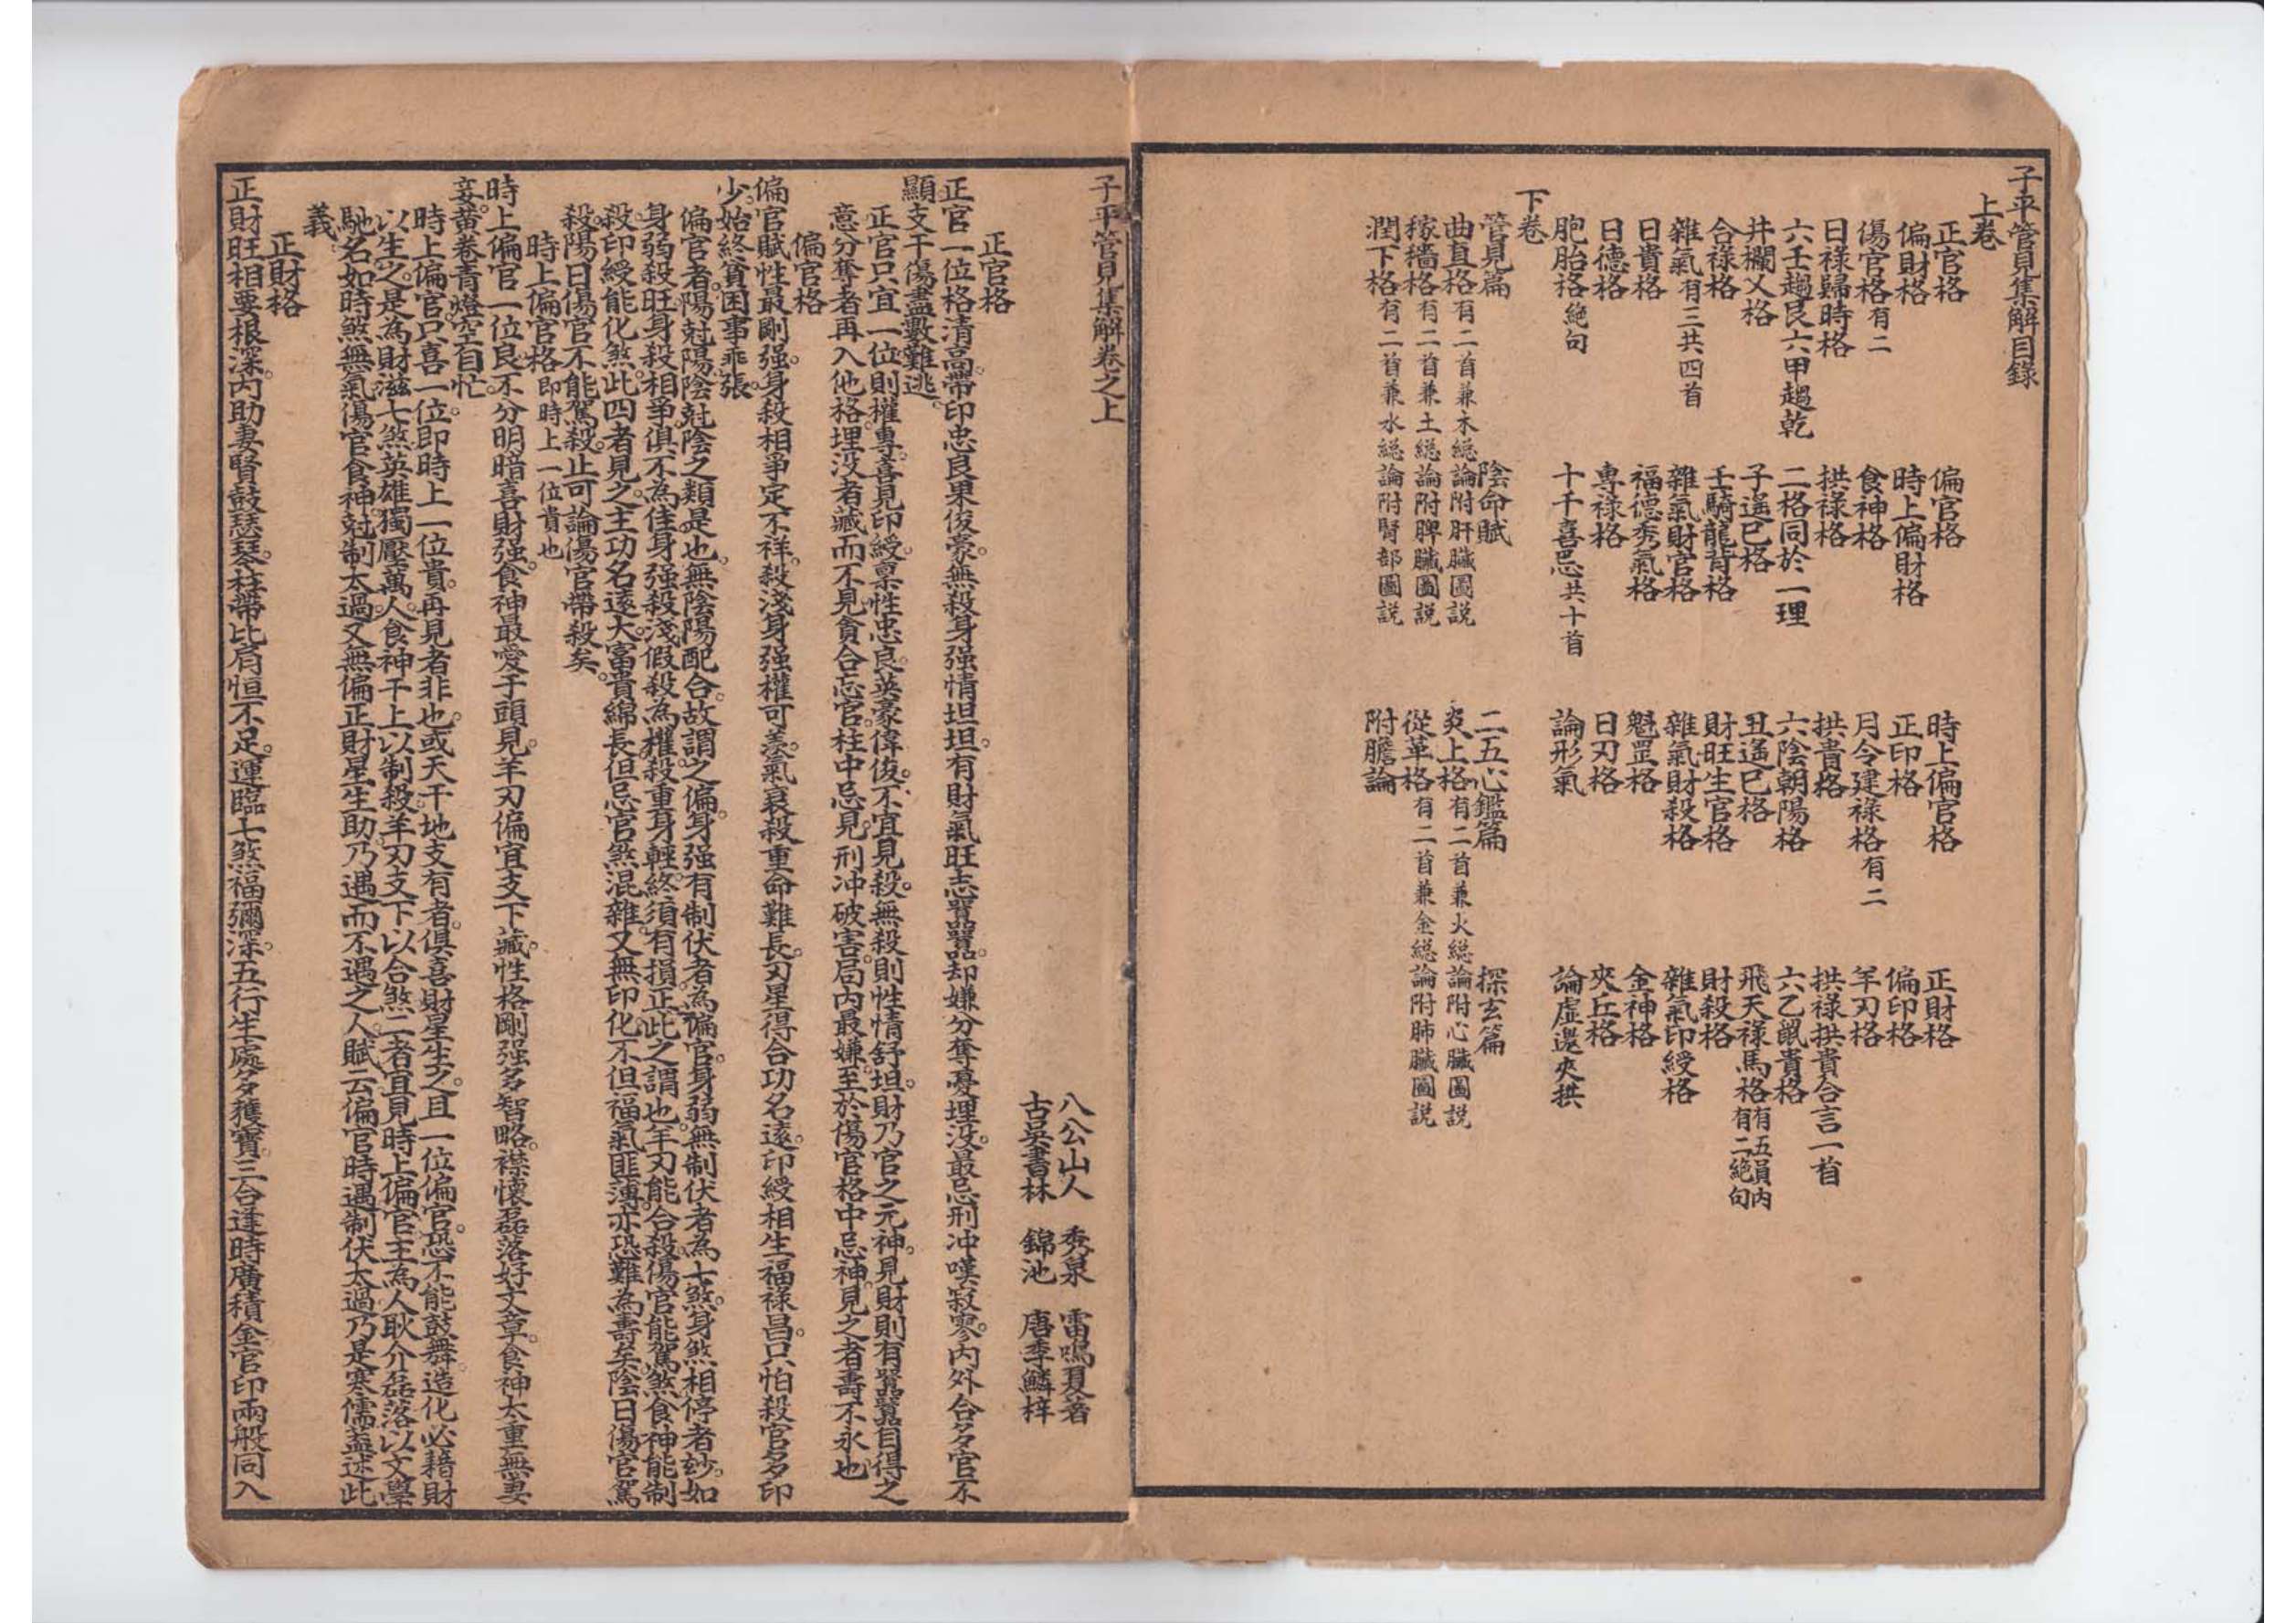 子平管見集解目錄
上卷
正官格　偏官格　時上偏官格　正財格
偏財格　時上偏財格　正印格　偏印格
傷官格有二　食神格　月令建祿格有二　羊刃格
日祿歸時格　拱祿格　拱貴格　拱祿拱貴合言一首
六壬趨艮六甲趨乾　二格同於一理　六陰朝陽格　六乙鼠貴格
井欄乂格　子遙巳格　丑遙巳格　飛天祿馬格有五員內有二絕句
合祿格　壬騎龍背格　財旺生官格　財殺格
雜氣有三共四首　雜氣財官格　雜氣財殺格　雜氣印綬格
日貴格　福德秀氣格　魁罡格　金神格
日德格　專祿格　日刃格　夾丘格
胞胎格絕句　十干喜忌共十首　論形氣　論虛邀夾拱
下卷
管見篇　陰命賦　二五心鑑篇　探玄篇
曲直格有二首兼木總論附肝臟圖說　炎上格有二首兼火總論附心臟圖說
稼穡格有二首兼土總論附脾臟圖說　從革格有二首兼金總論附肺臟圖說
潤下格有二首兼水總論附腎部圖說　附膽論
子平管見集解卷之上
八公山人　秀泉　雷鳴夏著
古吳書林　錦池　唐季鱗梓
正官格
正官一位格清高。帶印忠良果俊豪。無殺身强情坦坦。有財氣旺志囂囂。却嫌分奪憂埋沒。最忌刑冲嘆寂寥。內外合多官不
顯。支干傷盡數難逃。
正官只宜一位則權專。喜見印綬。稟性忠良。英豪偉俊。不宜見殺。無殺則性情舒坦。財乃官之元神。見財則有囂囂自得之
意。分奪者再入他格。埋沒者藏而不見。貪合忘官。柱中忌見。刑冲破害。局內最嫌。至於傷官格中忌神。見之者壽不永也
偏官格
偏官賦性最剛强。身殺相爭定不祥。殺淺身强權可羨。氣衰殺重命難長。刃星得合功名遠。印綬相生福祿昌。只怕殺官多印
少。始終貧困事乖張。
偏官者。陽尅陽陰尅陰之類是也。無陰陽配合。故謂之偏。身强有制伏者為偏官。身弱無制伏者為七煞。身煞相停者玅。如
身弱殺旺。身殺相爭。俱不為佳。身强殺淺。假殺為權。殺重身輕。終須有損。正此之謂也。羊刃能合殺。傷官能駕煞。食神能制
殺。印綬能化煞。此四者見之。主功名遠大。富貴綿長。但忌官煞混雜。又無印化。不但福氣匪薄。亦恐難為壽矣。陰日傷官駕
殺。陽日傷官不能駕殺。止可論傷官帶殺矣。
時上偏官格即時上一位貴也
時上偏官一位良。不分明暗喜財强。食神最愛干頭見。羊刃偏宜支下藏。性格剛强多智略。襟懷磊落好文章。食神太重無妻
妾。黄卷青燈空自忙。
時上偏官。只喜一位。即時上一位貴。再見者非也。或天干地支有者。俱喜財星生之。且一位偏官。恐不能鼓舞造化。必藉財
以生之。是為財滋七煞。英雄獨壓萬人。食神干上以制殺。羊刃支下以合煞。二者宜見。時上偏官。主為人耿介磊落。以文學
馳名。如時煞無氣。傷官食神尅制太過。又無偏正財星生助。乃遇而不遇之人。賦云。偏官時遇。制伏太過。乃是寒儒。蓋述此
義。
正財格
正財旺相要根深。內助妻賢鼓瑟琴。柱帶比肩恒不足。運臨七煞福彌深。五行生處多獲寶。三合逢時廣積金。官印兩般同入